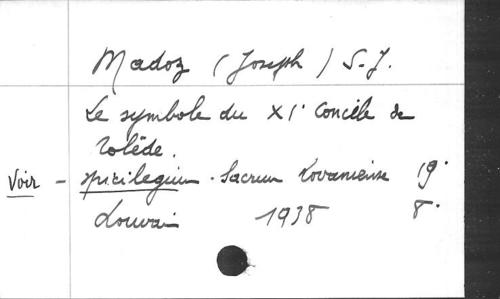 Madoz (Joseph) S.J.
Le symbole du XIe Concile de
Tolède.
Voir - spicilegium. Sacrum Lovaniense 19.
Louvain 1938 8°